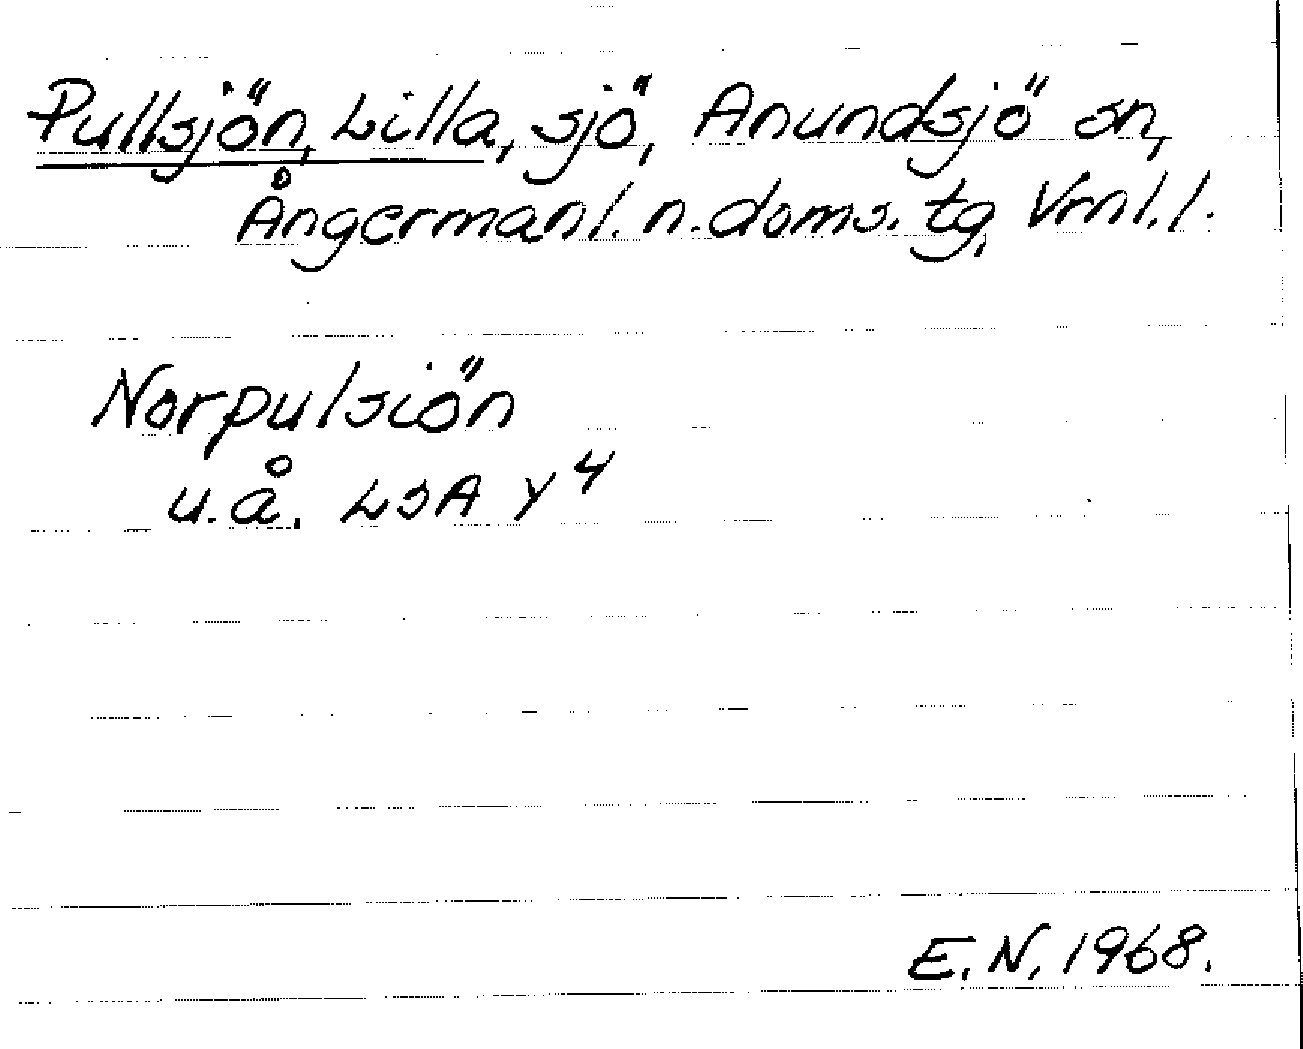 Pullsjön, Lilla, sjö, Anundsjö sn,
Ångermanl. n. doms. tg, Vrnl. l.
Norpulsiön
u.å. LSA Y4
E.N. 1968.